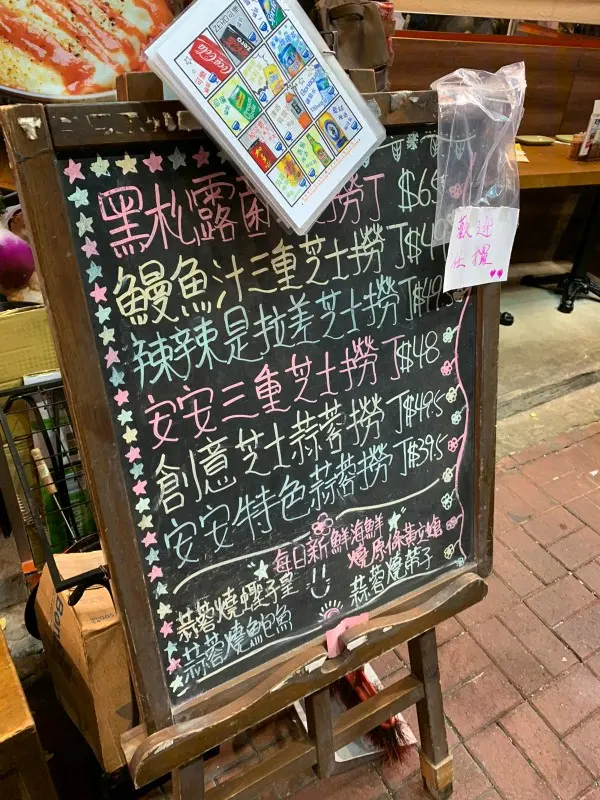 Coca-Cola
黑松露菌 撈丁 $65
歡迎
鰻魚汁三重芝士撈丁 $4
辣辣是拉差芝士撈丁 $49.5
安安三重芝士撈丁 $48
創意芝士蒜蓉撈丁 $49.5
安安特色蒜蓉撈丁 $39.5
每日新鮮海鮮
蒜蓉燒蟶子皇
燒原條黃沙
蒜蓉燒鮑魚
蒜蓉燒帶子